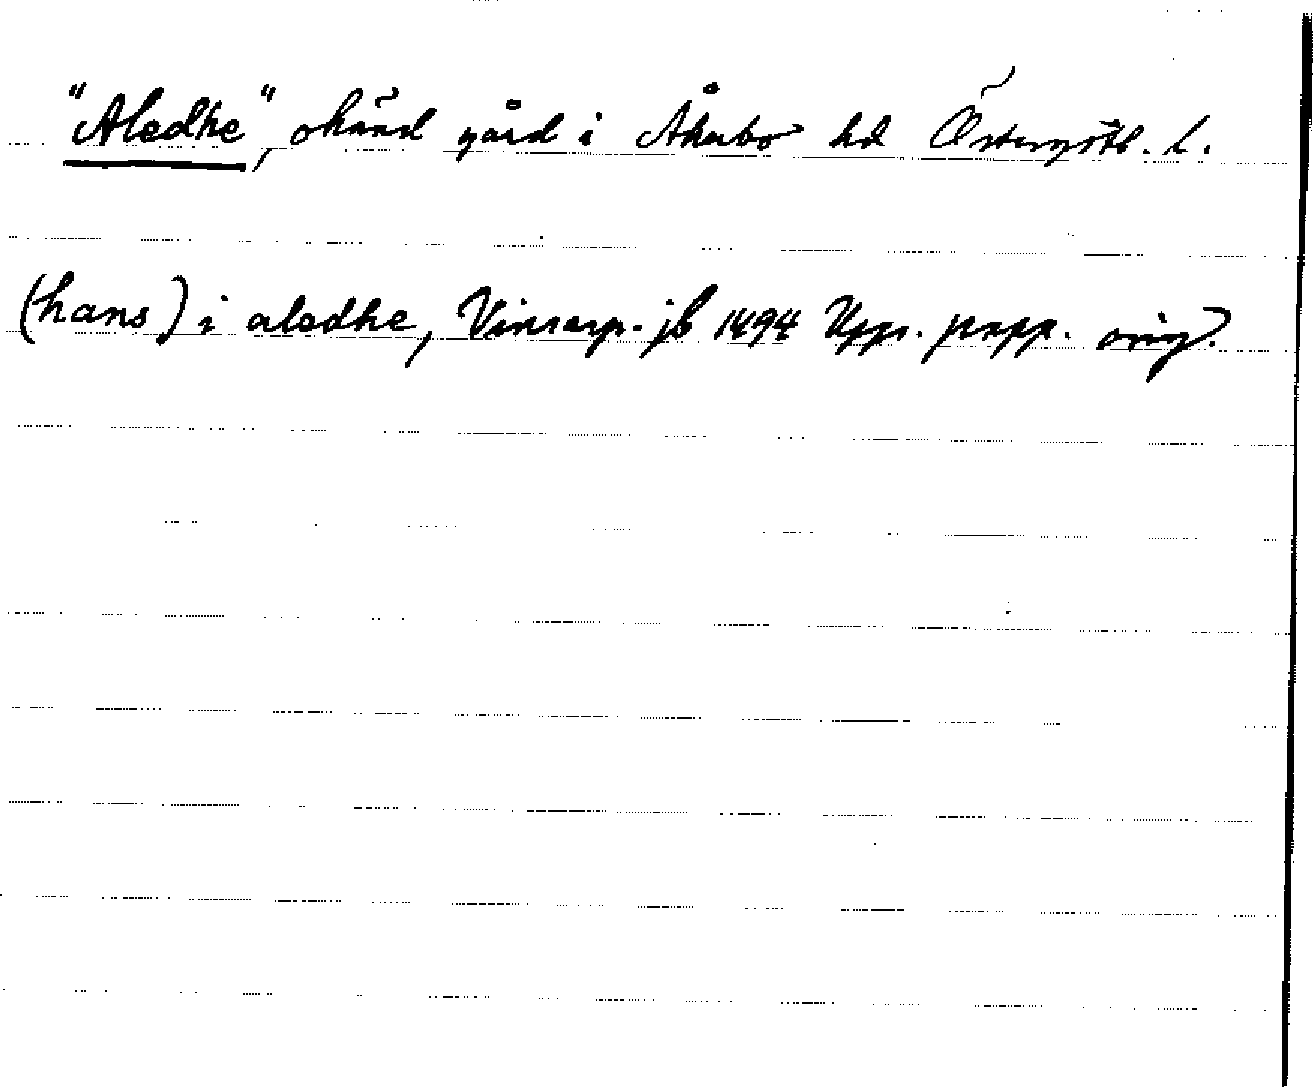 "Aledhe", okänd gård i Åkerbo hd Östergötl. l.
(hans) i aledhe, Vinsarp. jb 1494 Upps. papp. orig.